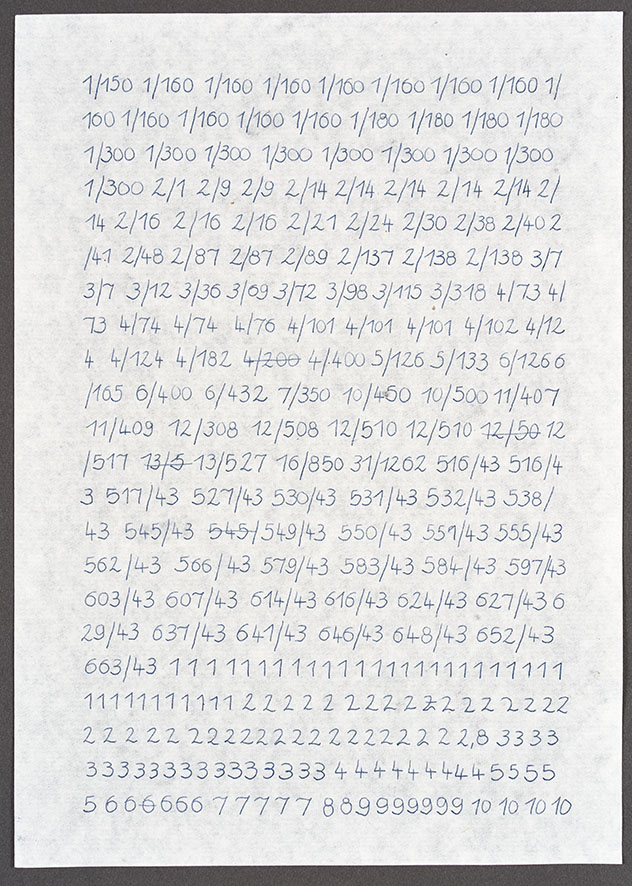 1/150 1/160 1/160 1/160 1/160 1/160 1/160 1/160 1/
160 1/160 1/160 1/160 1/160 1/180 1/180 1/180 1/180
1/300 1/300 1/300 1/300 1/300 1/300 1/300 1/300
1/300 2/1 2/9 2/9 2/14 2/14 2/14 2/14 2/14 2/
14 2/16 2/16 2/16 2/21 2/24 2/30 2/38 2/40 2
/41 2/48 2/87 2/87 2/89 2/137 2/138 2/138 3/7
3/7 3/12 3/36 3/69 3/72 3/98 3/115 3/318 4/73 4/
73 4/74 4/74 4/76 4/101 4/101 4/101 4/102 4/12
4 4/124 4/182 4/200 4/400 5/126 5/133 6/126 6
/165 6/400 6/432 7/350 10/450 10/500 11/407
11/409 12/308 12/508 12/510 12/510 12/50 12
/517 13/5 13/527 16/850 31/1262 516/43 516/4
3 517/43 527/43 530/43 531/43 532/43 538/
43 545/43 545/549/43 550/43 551/43 555/43
562/43 566/43 579/43 583/43 584/43 597/43
603/43 607/43 614/43 616/43 624/43 627/43 6
29/43 637/43 641/43 646/43 648/43 652/43
663/43 1 1 1 1 1 1 1 1 1 1 1 1 1 1 1 1 1 1 1 1 1 1 1 1
1 1 1 1 1 1 1 1 1 1 1 1 2 2 2 2 2 2 2 2 2 2 2 2 2 2 2 2 2 2
2 2 2 2 2 2 2 2 2 2 2 2 2 2 2 2 2 2 2 2 2 2,8 3 3 3 3
3 3 3 3 3 3 3 3 3 3 3 3 3 3 3 3 4 4 4 4 4 4 4 4 4 4 5 5 5 5
5 6 6 6 6 6 6 7 7 7 7 7 8 8 9 9 9 9 9 9 9 10 10 10 10